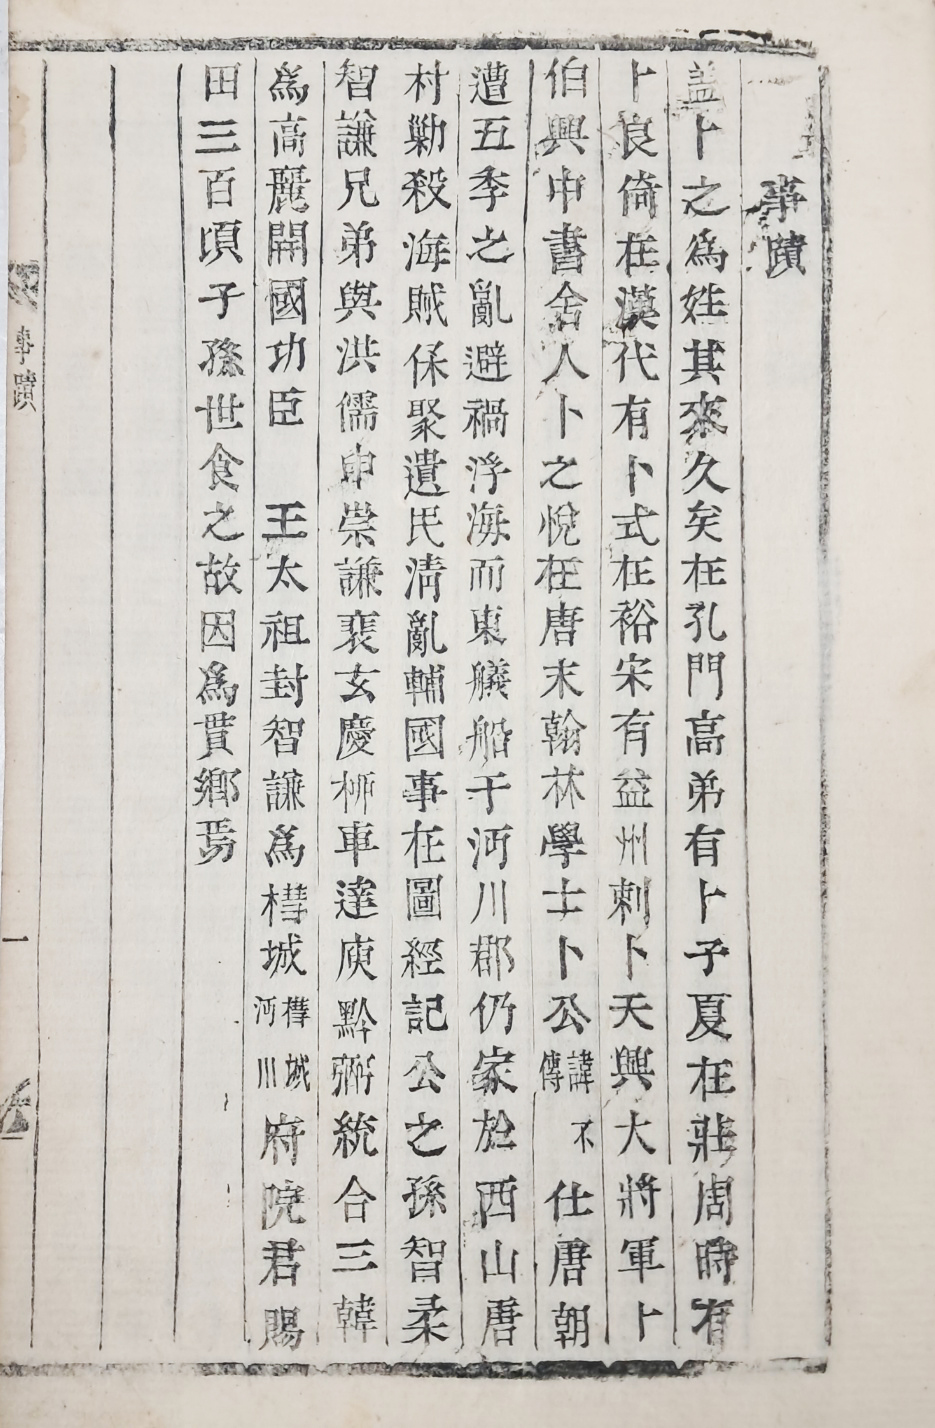 事蹟
盖卜之爲姓其來久矣在孔門高弟有卜子夏在莊周時有
卜良倚在漢代有卜式在裕宋有益州刺卜天興大將軍卜
伯興中書舍人卜之悅在唐末翰林學士卜公諱不傳仕唐朝
遭五季之亂避禍浮海而東艤船于沔川郡仍家於西山唐
村勦殺海賊保聚遺民淸亂輔國事在圖經記公之孫智柔
智謙兄弟與洪儒申崇謙裴玄慶栁車達庾黔弼統合三韓
爲高麗開國功臣 王太祖封智謙爲槥城槥城沔川府院君賜
田三百頃子孫世食之故因爲貫鄉焉
事蹟
一